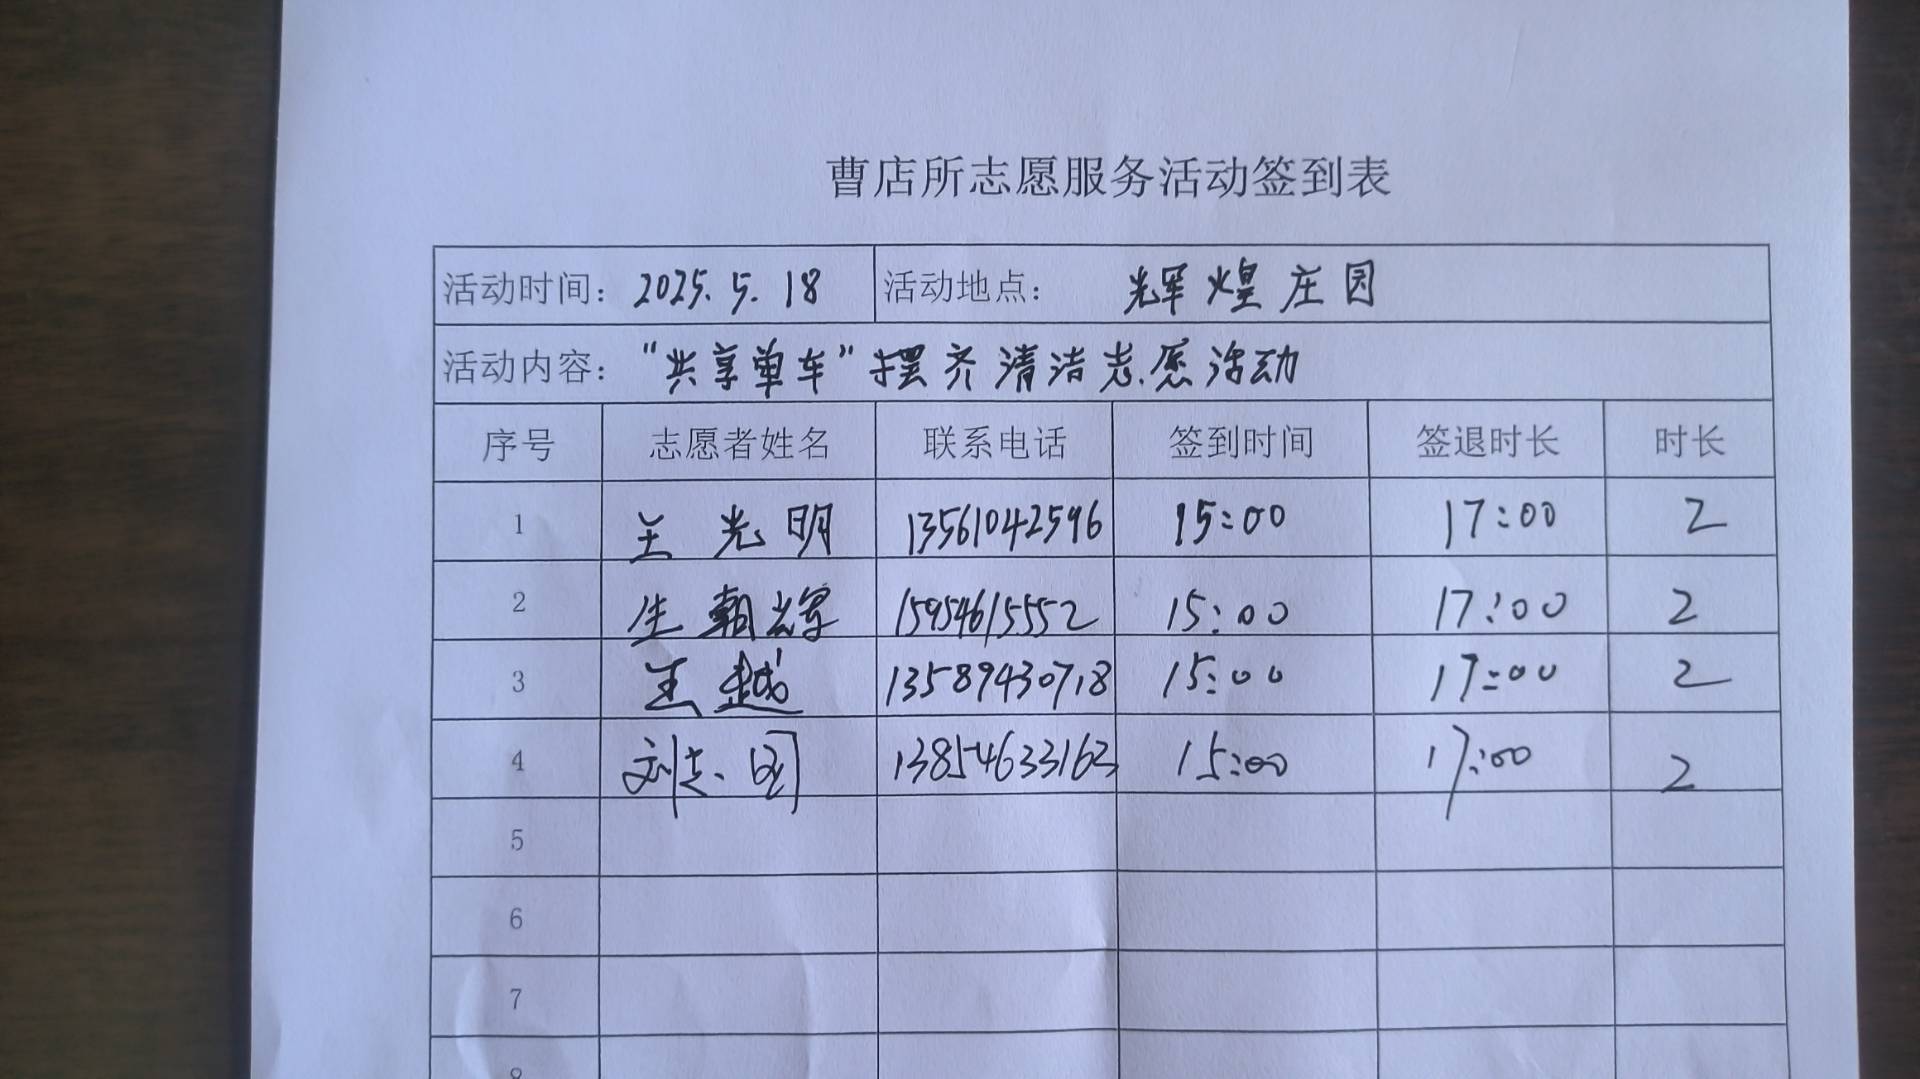 曹店所志愿服务活动签到表
活动时间：2025.5.18 活动地点：辉煌庄园
活动内容："共享单车"摆齐清洁志愿活动
序号 志愿者姓名 联系电话 签到时间 签退时长 时长
1 王光明 13561042596 15:00 17:00 2
2 生朝辉 15954615552 15:00 17:00 2
3 王越 13589430718 15:00 17:00 2
4 刘志 13854633163 15:00 17:00 2
5
6
7
8